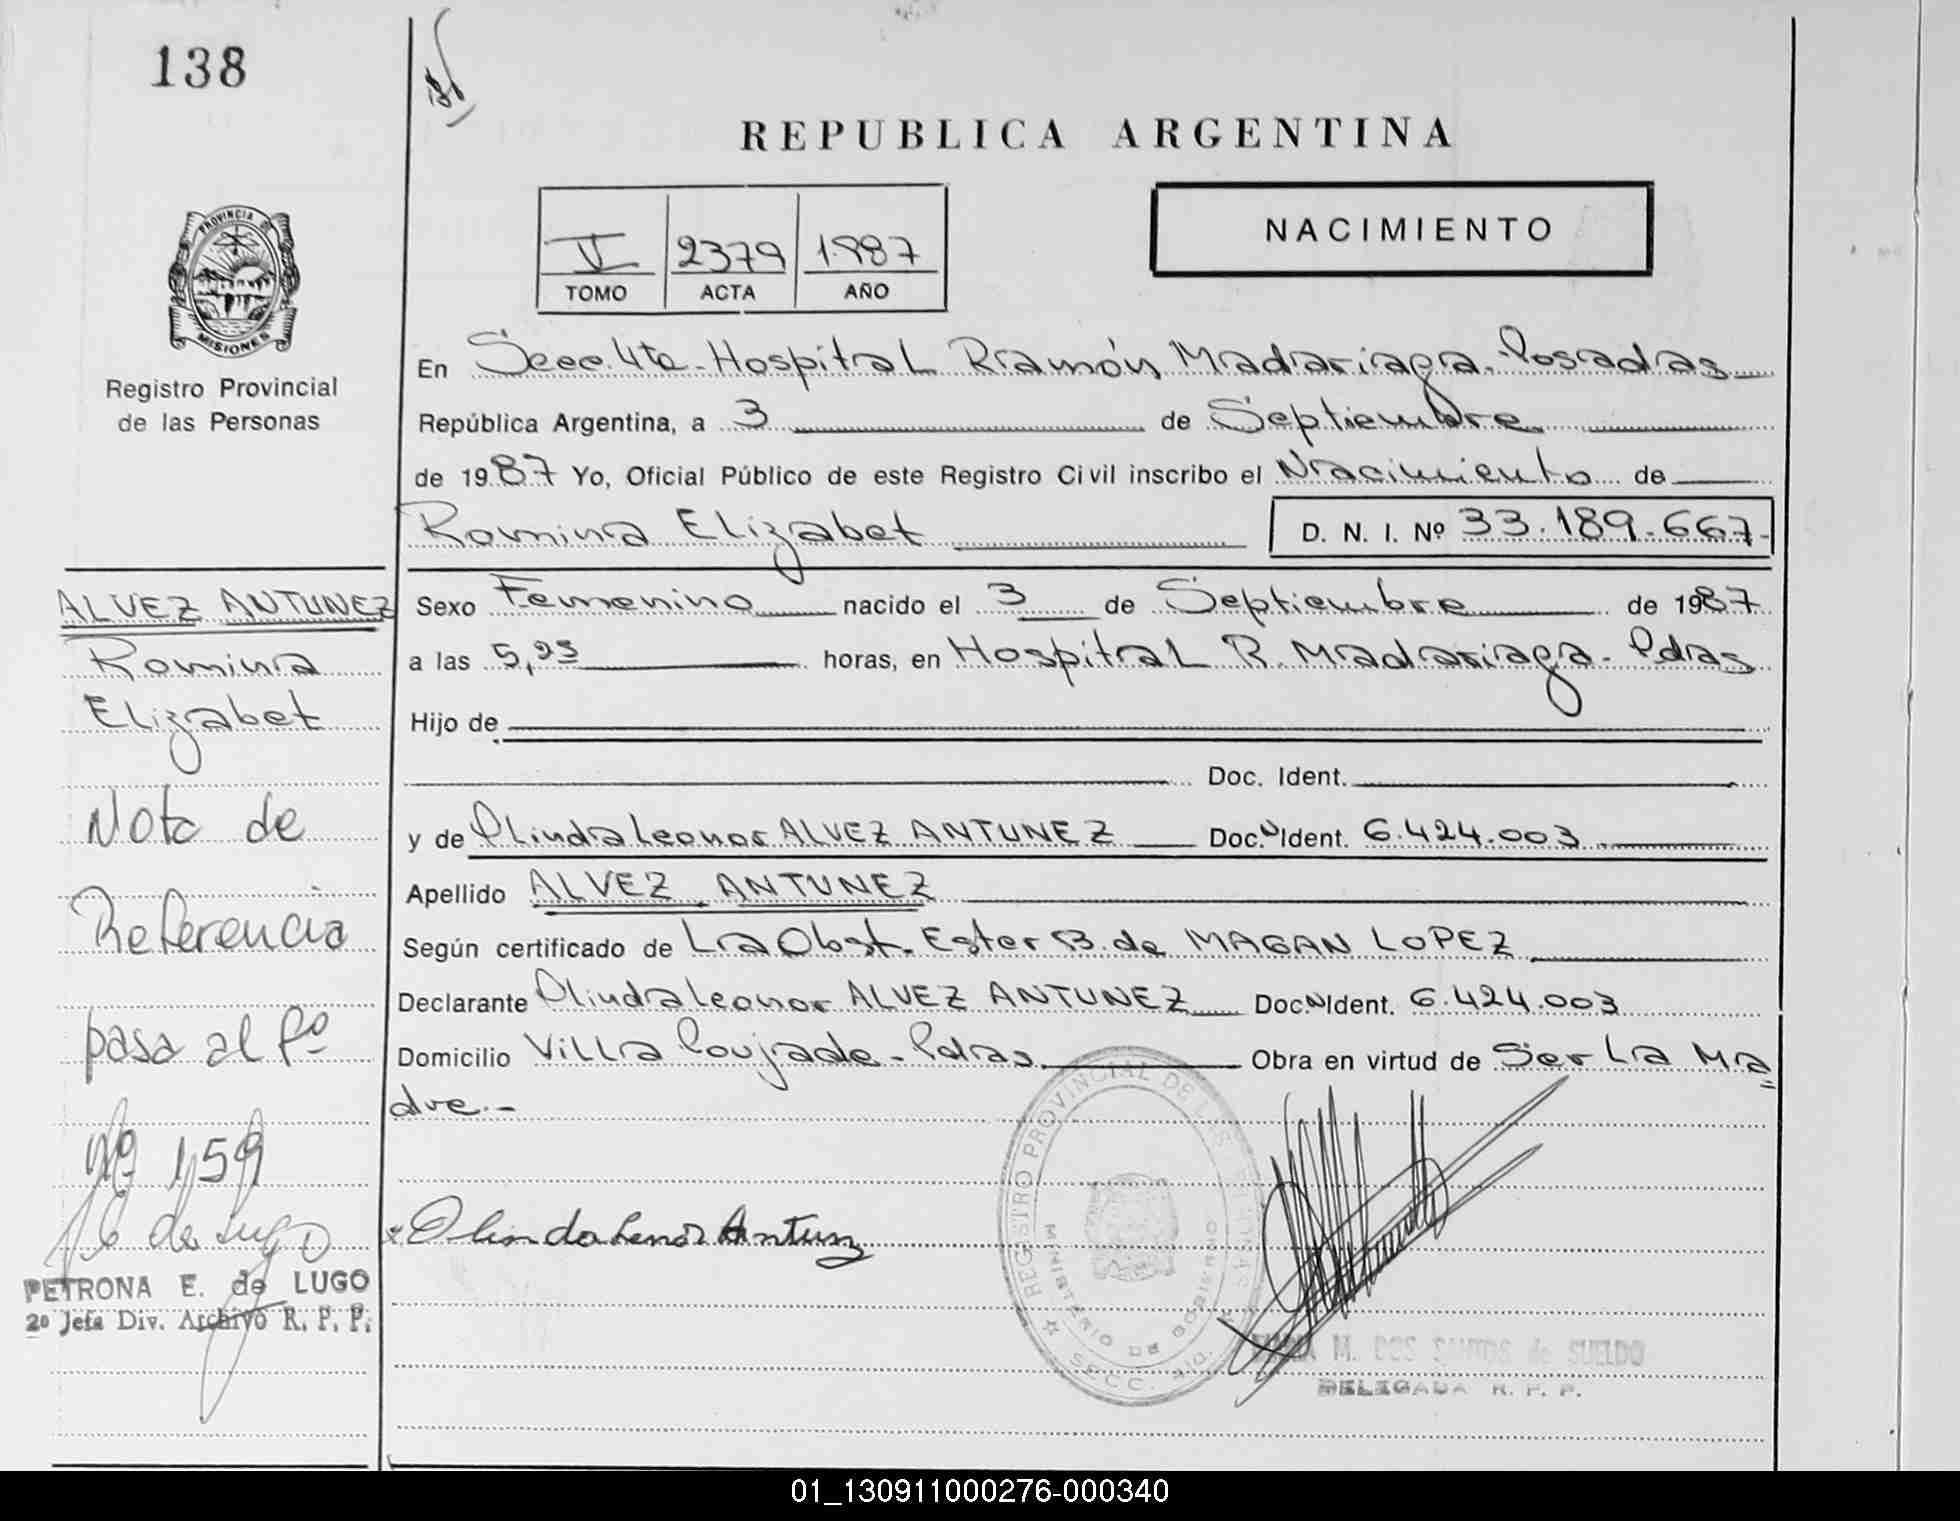 138
REPUBLICA ARGENTINA
NACIMIENTO
V 2379 1987
TOMO ACTA AÑO
PROVINCIA DE
MISIONES
Registro Provincial
de las Personas
En Secc. 4ta - Hospital Ramón Madariaga - Posadas
República Argentina, a 3 de Septiembre
de 1987 Yo, Oficial Público de este Registro Civil inscribo el Nacimiento de
Romina Elizabet D. N. I. Nº 33.189.667-
Sexo Femenino nacido el 3 de Septiembre de 1987
a las 5,25 horas, en Hospital R. Madariaga - Pdas
Hijo de
Doc. Ident.
y de Olinda Leonor ALVEZ ANTUNEZ Doc. N Ident. 6.424.003
Apellido ALVEZ ANTUNEZ
Según certificado de La Obst. Ester B. de MAGAN LOPEZ
Declarante Olinda Leonor ALVEZ ANTUNEZ Doc. N Ident. 6.424.003
Domicilio Villa Poujade - Pdas Obra en virtud de Ser La Ma
dre.-
Olinda Lenor Antunz
REGISTRO PROVINCIAL DE LAS PERSONAS
MINISTERIO DE GOBIERNO
SECC.
M. DOS SANTOS de SUELDO
DELEGADA R. P. P.
ALVEZ ANTUNEZ
Romina
Elizabet
Nota de
Referencia
pasa al Fº
Nº 159
de Lugo
PETRONA E. de LUGO
2º Jefa Div. Archivo R. P. P.
01_130911000276-000340